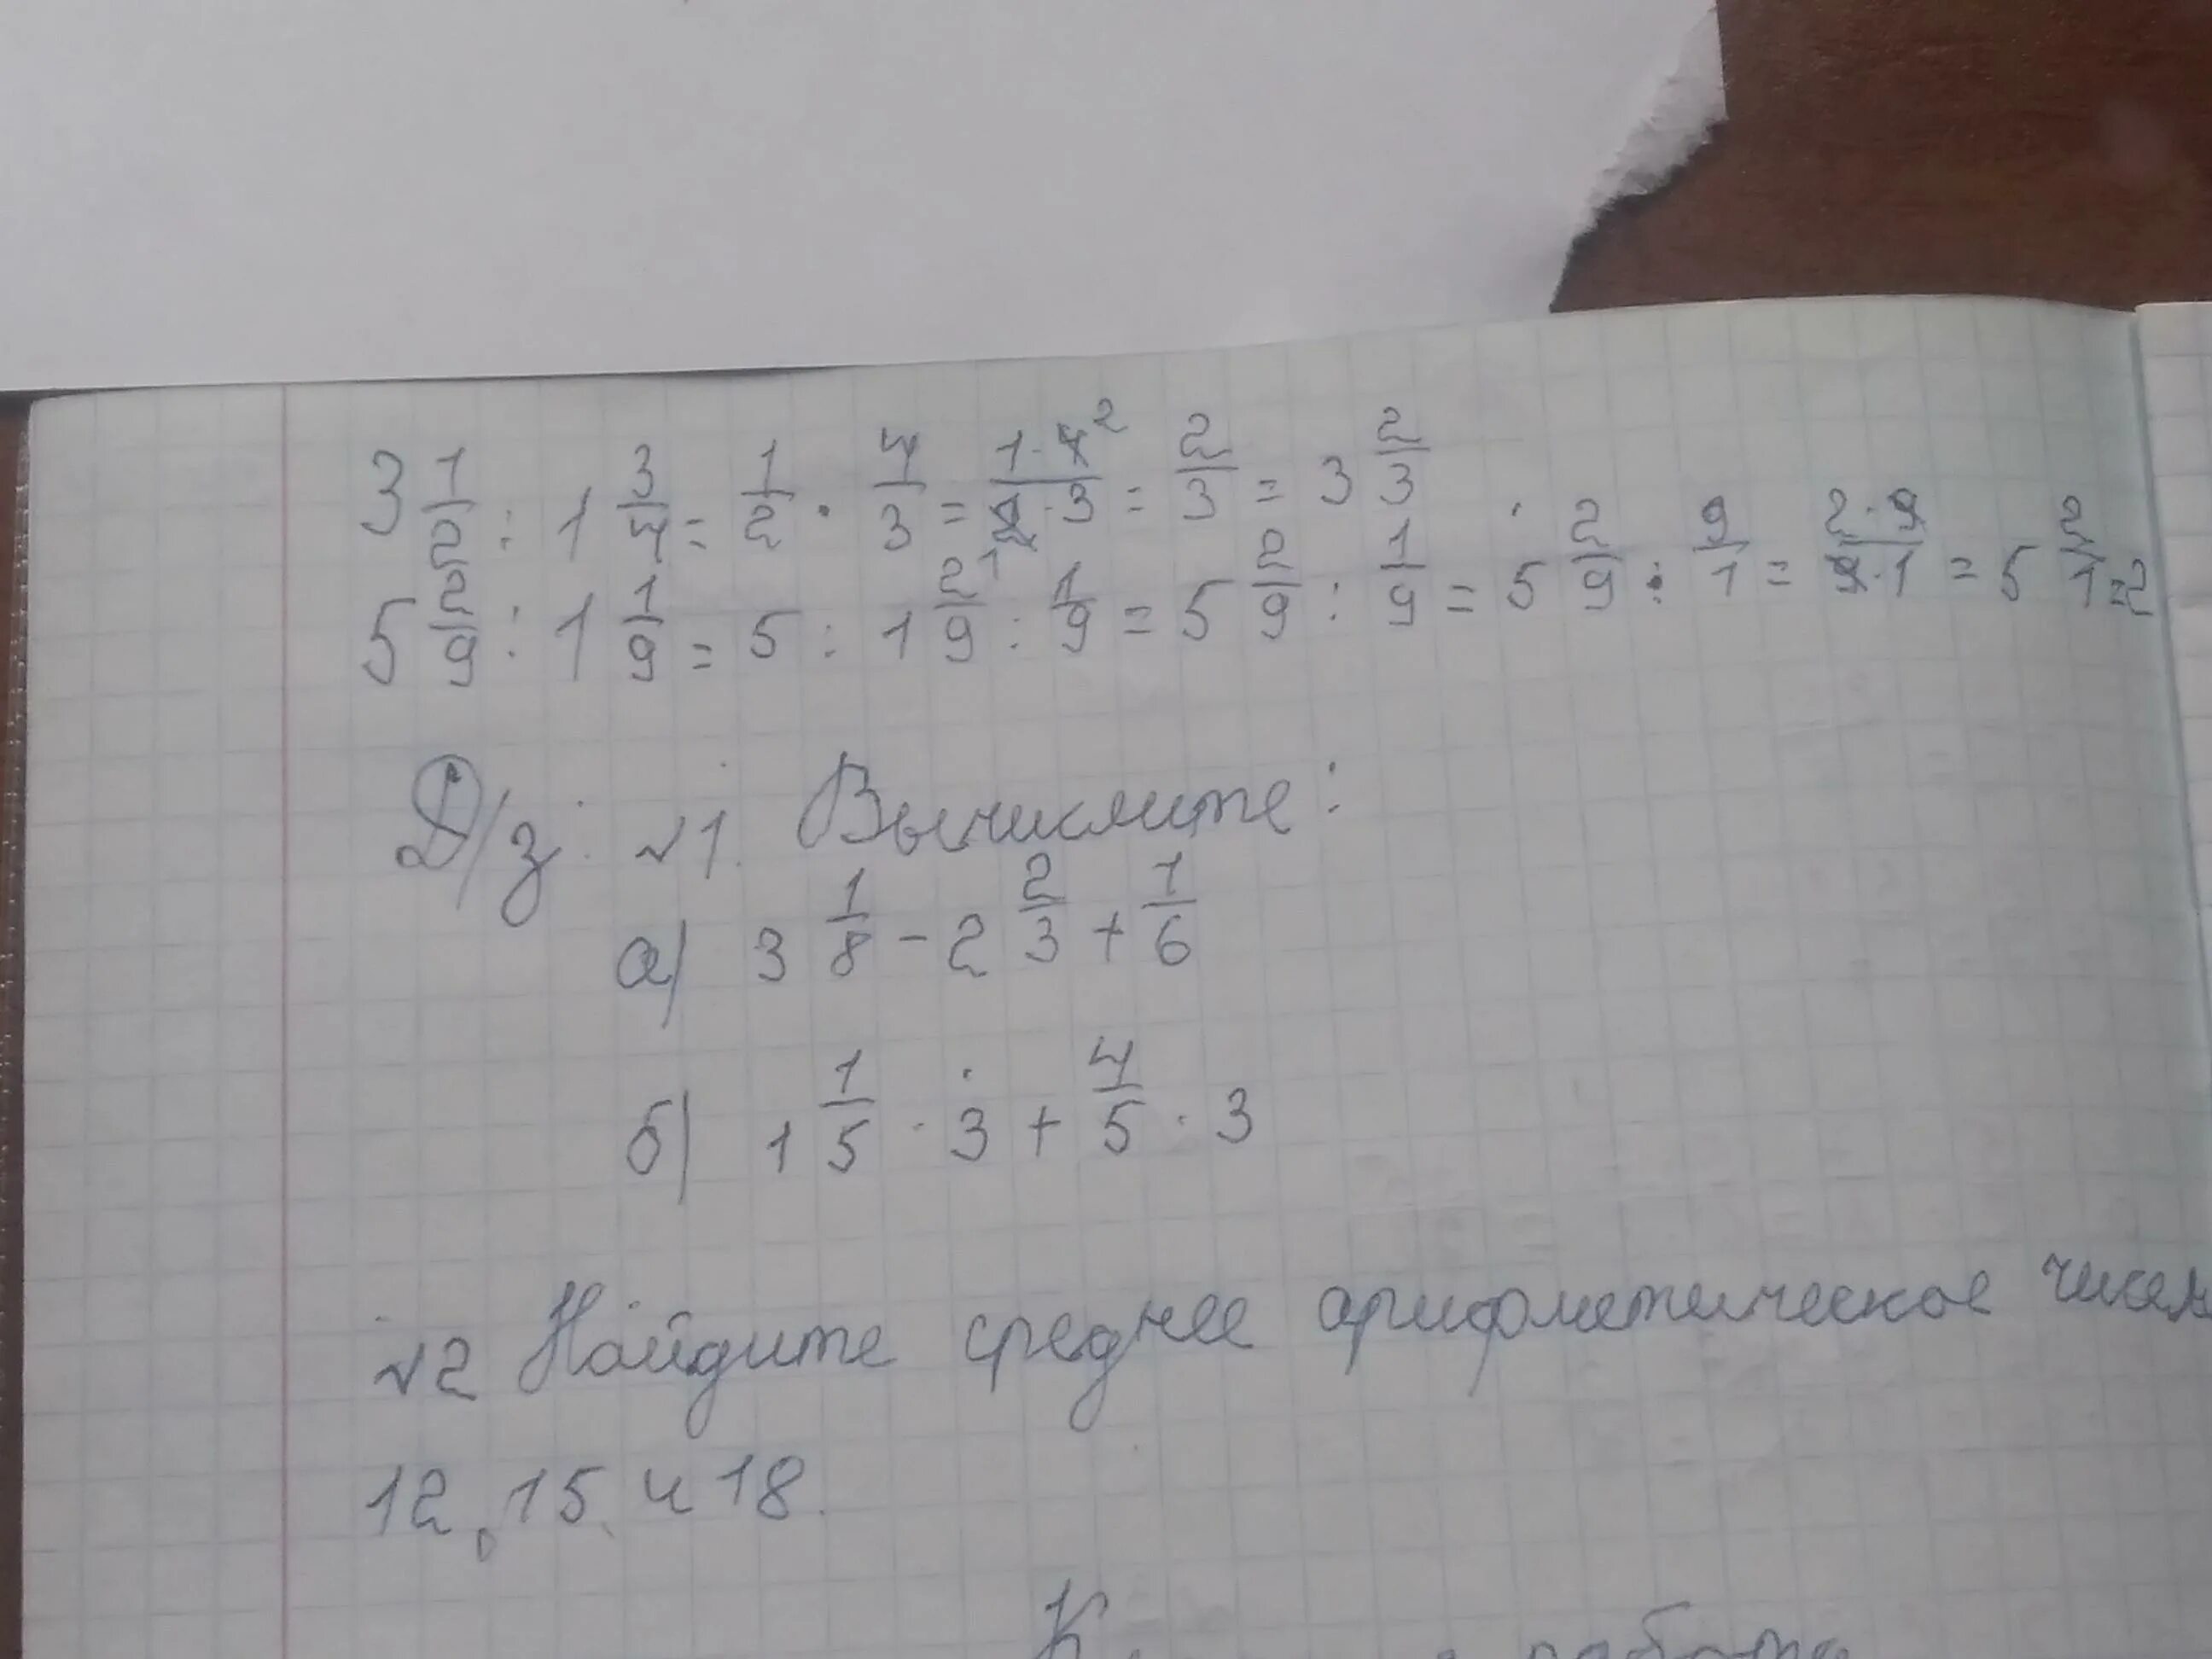 3 1/2 : 1 3/4 = 1/2 · 4/3 = 1·4²/2·3 = 2/3 = 3 2/3
5 2/9 : 1 1/9 = 5 : 1 2/9 : 1/9 = 5 2/9 : 1/9 = 5 2/9 : 9/1 = 2·9/9·1 = 5 2/1 = 2
Д/з. №1. Вычислите:
а) 3 1/8 - 2 2/3 + 1/6
б) 1 1/5 · 3 + 4/5 · 3
№2 Найдите среднее арифметическое чисел
12, 15 и 18.
работа